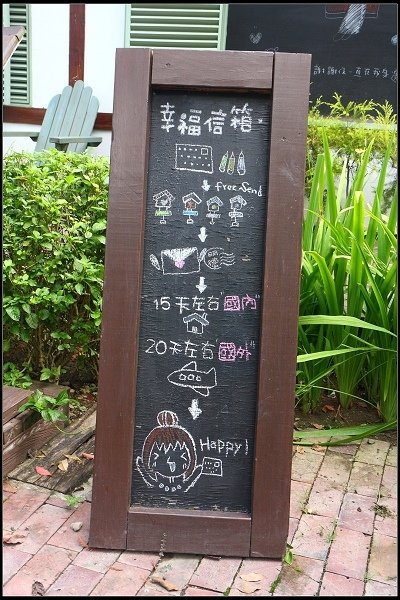 幸福信箱
free-Send
15天左右"國內"
20天左右"國外"
Happy!